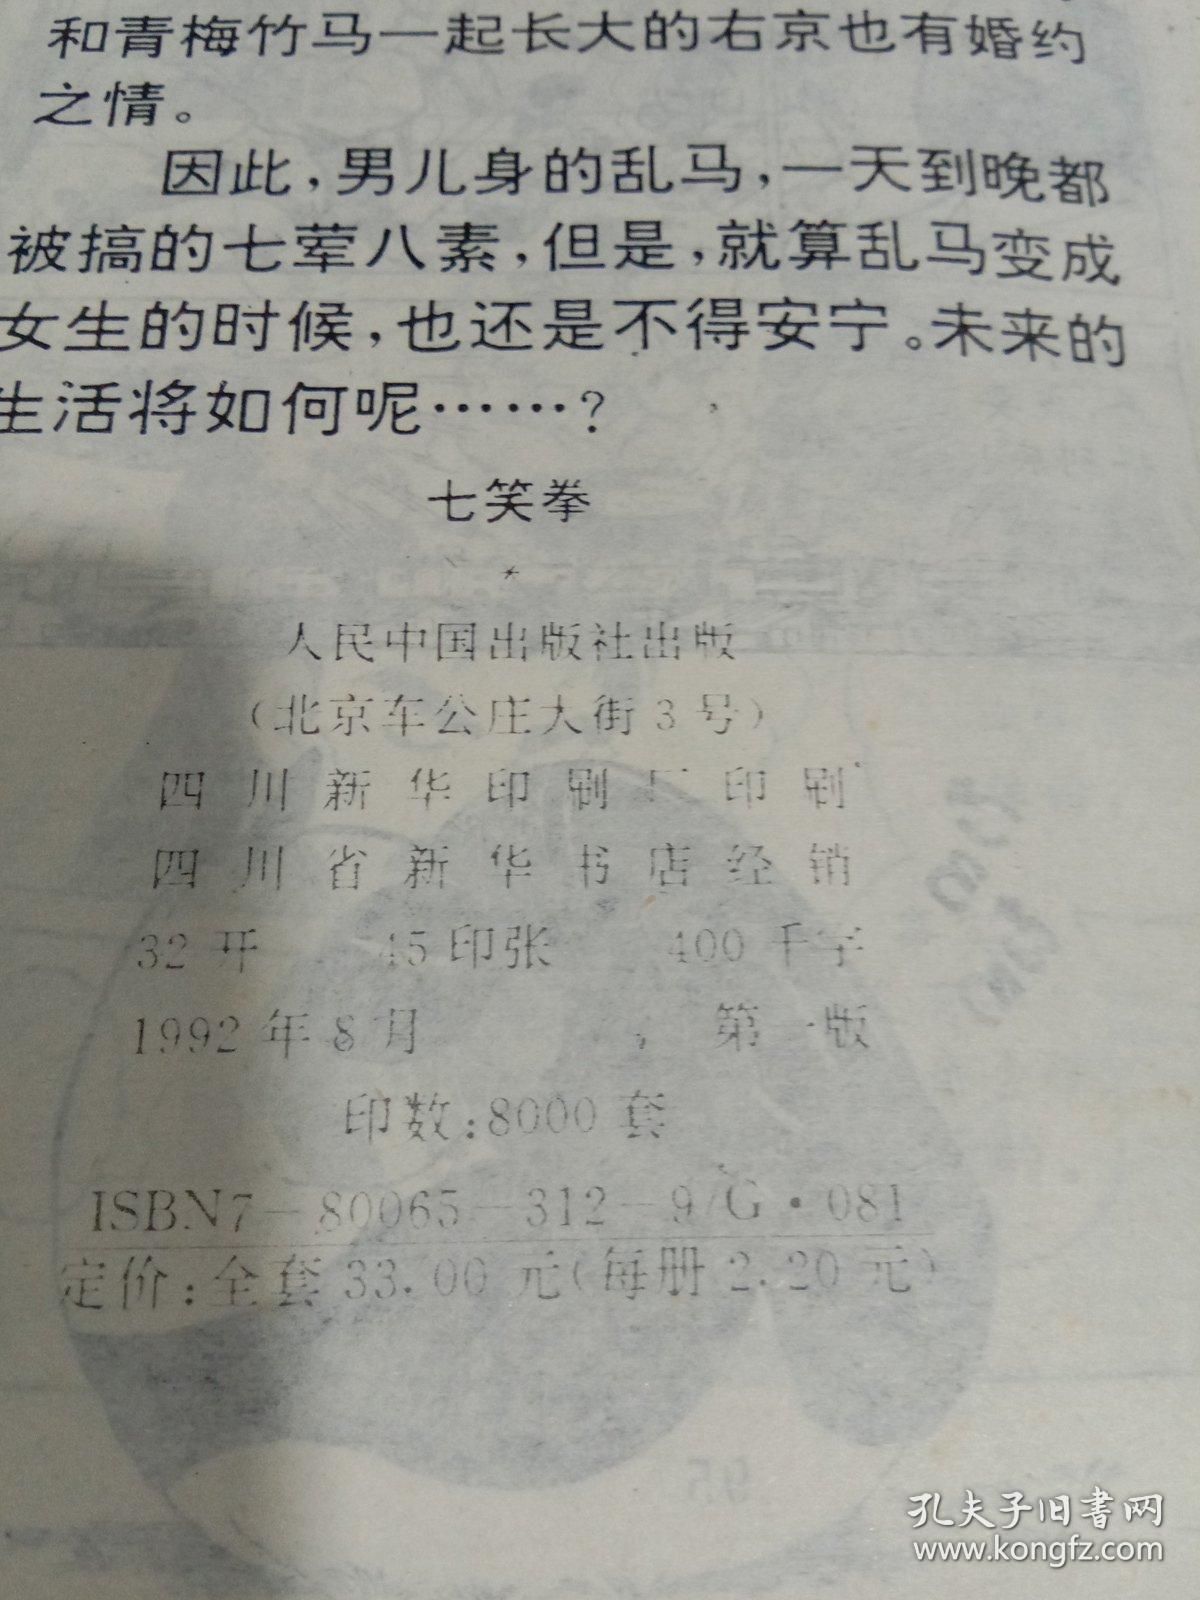 和青梅竹马一起长大的右京也有婚约
之情。
因此，男儿身的乱马，一天到晚都
被搞的七荤八素，但是，就算乱马变成
女生的时候，也还是不得安宁。未来的
生活将如何呢……？
七笑拳
人民中国出版社出版
（北京车公庄大街3号）
四川新华印刷厂印刷
四川省新华书店经销
32开 45印张 400千字
1992年8月 第一版
印数：8000套
ISBN7－80065－312－9/G·081
定价：全套33.00元（每册2.20元）
95
孔夫子旧书网
www.kongfz.com